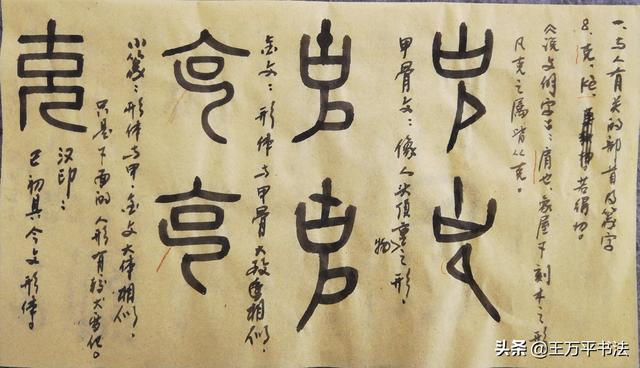 一、与人有关的部首及篆字
8、克、kè、苦得切。
《说文 字云：肩也、象屋下刻木之形
凡克之属皆从克。
克
克
甲骨文：像人头顶重物之形，
克
克
金文：形体与甲骨大致相似，
克
克
小篆：形体与甲、金文大体相似，
只是下面的人形有较大变化。
汉印：
已初具今文形体。
克
头条 @王万平书法